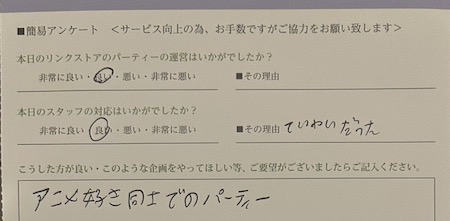 ■簡易アンケート ＜サービス向上の為、お手数ですがご協力をお願い致します＞
本日のリンクストアのパーティーの運営はいかがでしたか？
非常に良い・良い・悪い・非常に悪い ■その理由
本日のスタッフの対応はいかがでしたか？
非常に良い・良い・悪い・非常に悪い ■その理由 ていねいだった
こうした方が良い・このような企画をやってほしい等、ご要望がございましたらご記入ください。
アニメ好き同士でのパーティー